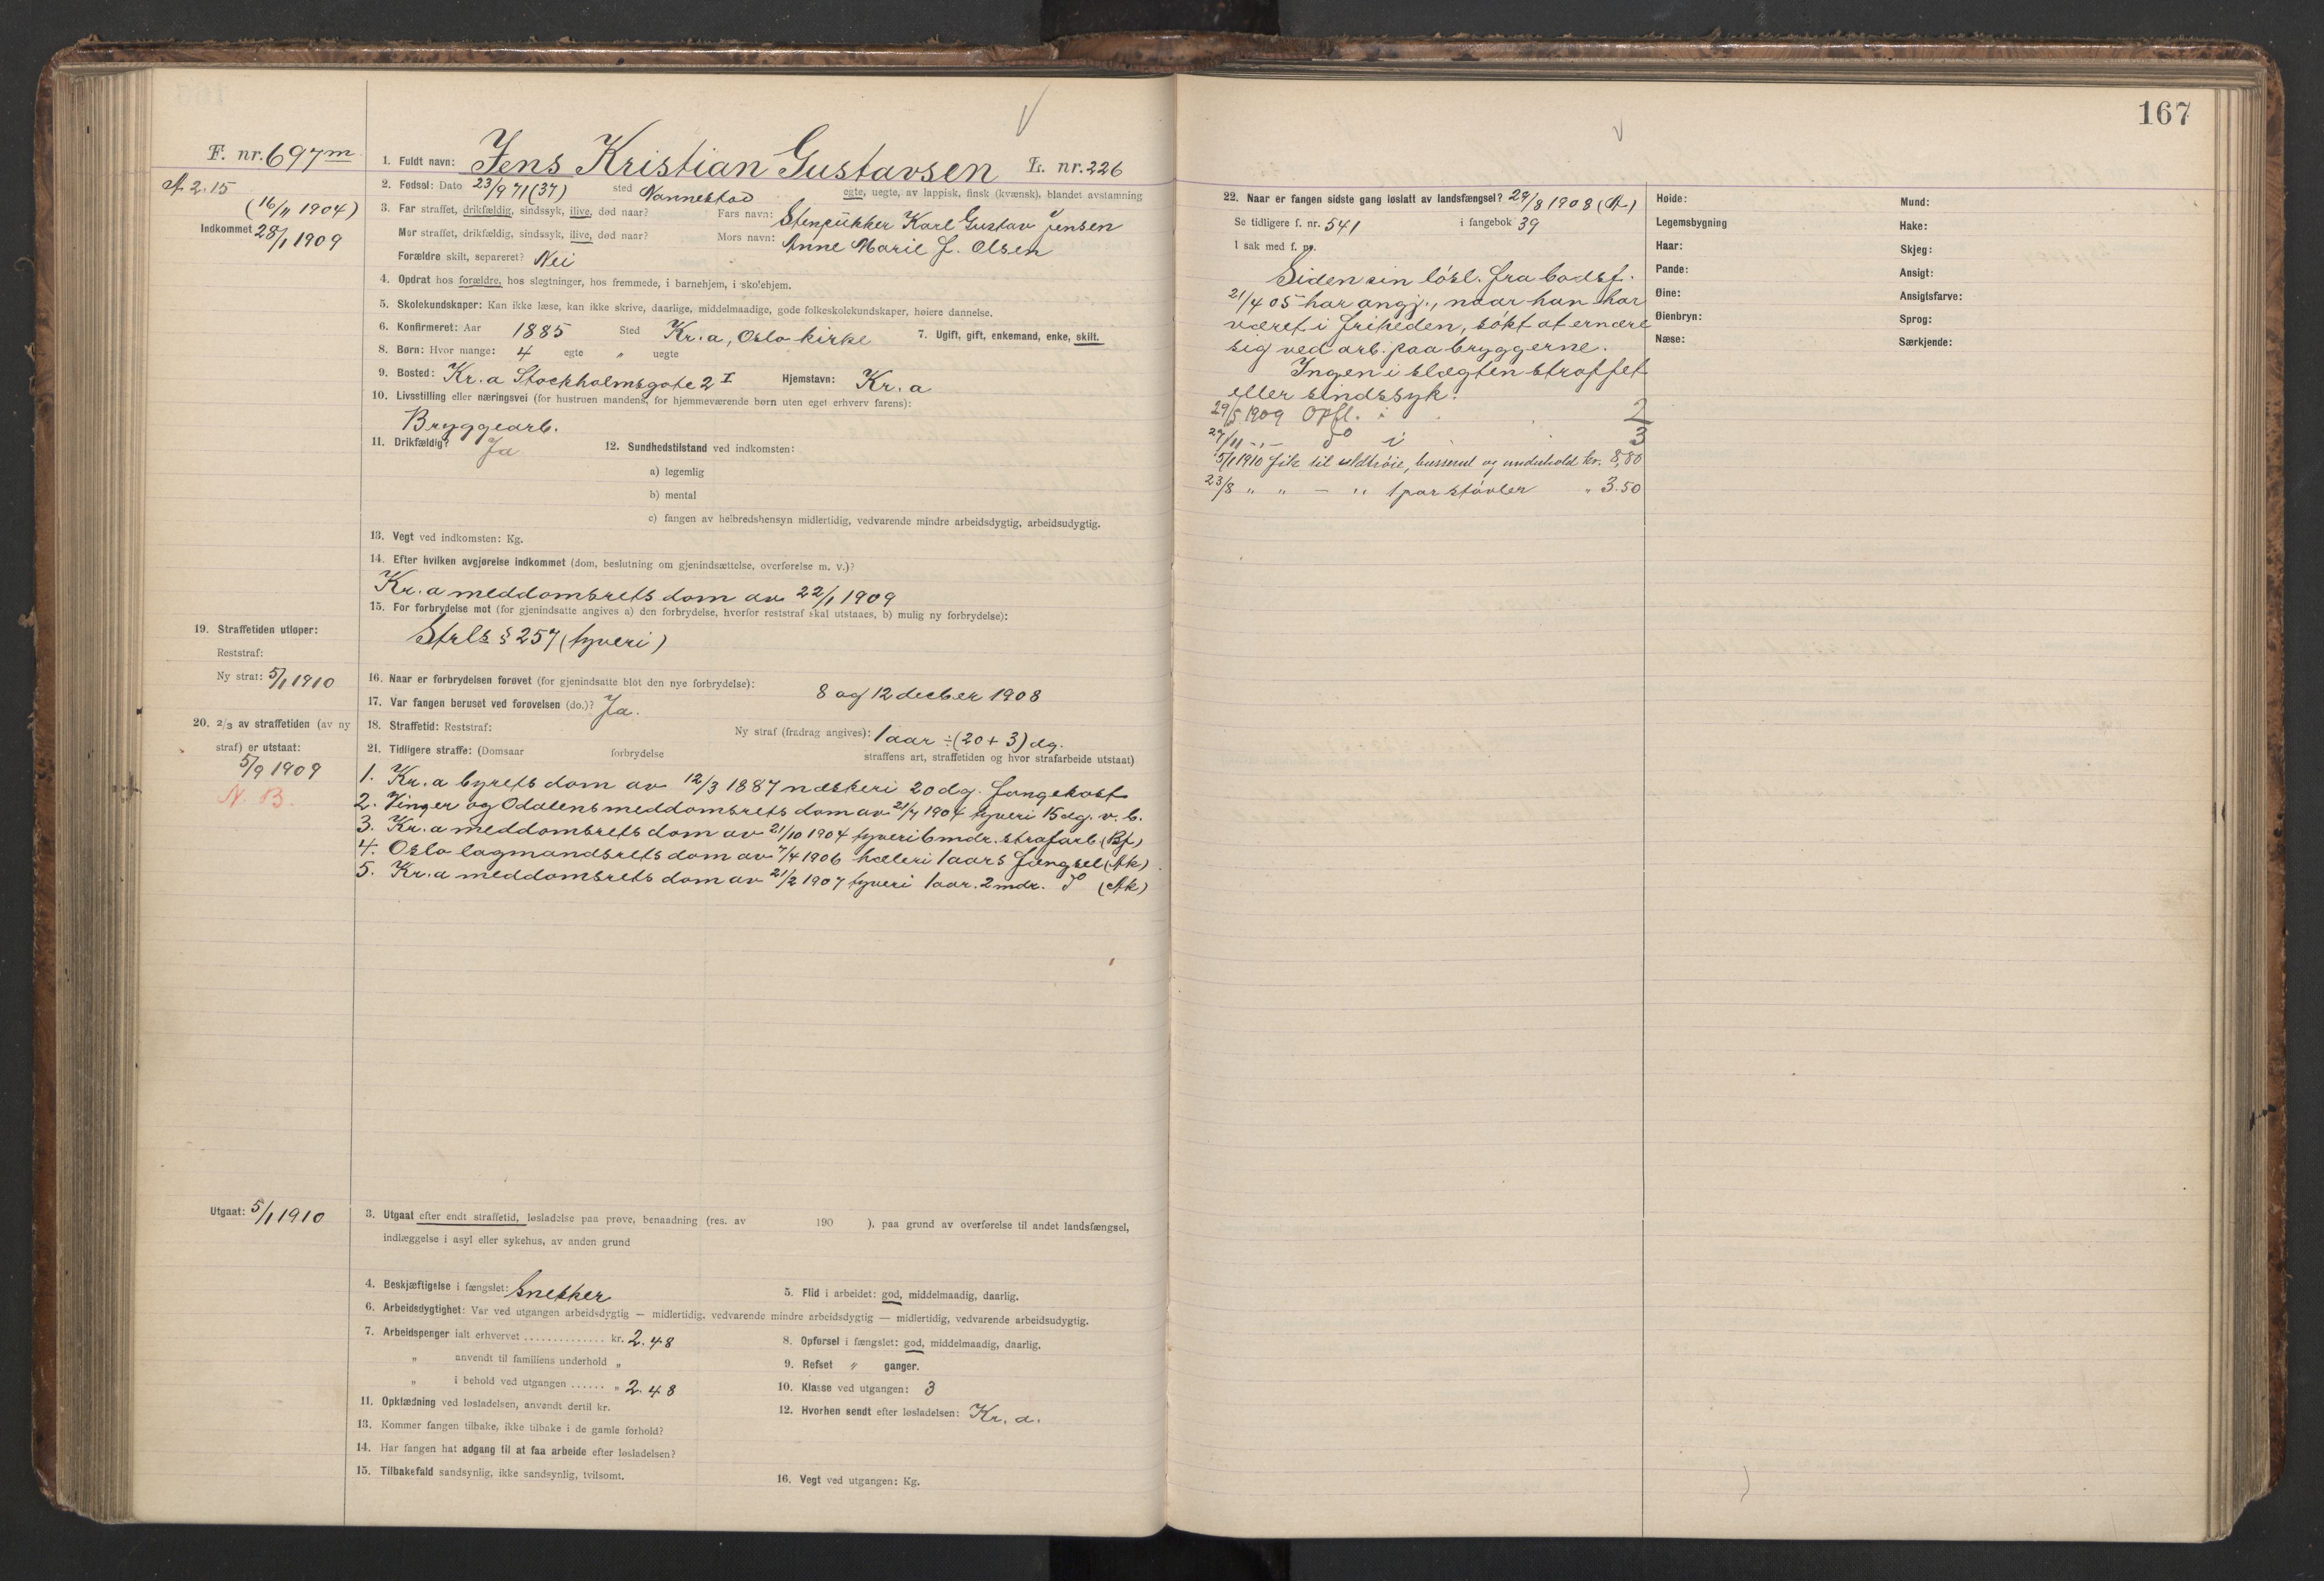 167
F. nr. 697 m
1. Fuldt navn: Jens Kristian Gustavsen L. nr. 226
A 2.15
(16/11 1904)
Indkommet 28/1 1909
2. Fødsel: Dato 23/9 71 (37) sted Nannestad egte, uegte, av lappisk, finsk (kvænsk), blandet avstamning
3. Far straffet, drikfældig, sindssyk, ilive, død naar? Fars navn: Stenpukker Karl Gustav Jensen
Mor straffet, drikfældig, sindssyk, ilive, død naar? Mors navn: Anne Marie J. Olsen
Forældre skilt, separeret? Nei
4. Opdrat hos forældre, hos slegtninger, hos fremmede, i barnehjem, i skolehjem.
5. Skolekundskaper: Kan ikke læse, kan ikke skrive, daarlige, middelmaadige, gode folkeskolekundskaper, høiere dannelse.
6. Konfirmeret: Aar 1885 Sted Kr.a, Oslo kirke 7. Ugift, gift, enkemand, enke, skilt.
8. Børn: Hvor mange: 4 egte " uegte
9. Bosted: Kr.a Stockholmsgate 2 I Hjemstavn: Kr.a
10. Livsstilling eller næringsvei (for hustruen mandens, for hjemmeværende børn uten eget erhverv farens):
Bryggearb.
11. Drikfældig? Ja 12. Sundhedstilstand ved indkomsten:
a) legemlig
b) mental
c) fangen av helbredshensyn midlertidig, vedvarende mindre arbeidsdygtig, arbeidsudygtig.
13. Vegt ved indkomsten: Kg.
14. Efter hvilken avgjørelse indkommet (dom, beslutning om gjenindsættelse, overførelse m. v.)?
Kr.a meddomsrets dom av 22/1 1909
15. For forbrydelse mot (for gjenindsatte angives a) den forbrydelse, hvorfor reststraf skal utstaaes, b) mulig ny forbrydelse):
Strls § 257 (tyveri)
19. Straffetiden utløper:
Reststraf:
Ny straf: 5/1 1910
16. Naar er forbrydelsen forøvet (for gjenindsatte blot den nye forbrydelse): 8 og 12 decber 1908
17. Var fangen beruset ved forøvelsen (do.)? Ja.
20. 2/3 av straffetiden (av ny
straf) er utstaat:
5/9 1909
N. B.
18. Straffetid: Reststraf: Ny straf (fradrag angives): 1 aar ÷ (20 + 3) dg.
21. Tidligere straffe: (Domsaar forbrydelse straffens art, straffetiden og hvor strafarbeide utstaat)
1. Kr.a byrets dom av 12/3 1887 næskeri 20 dg. Fangekost
2. Vinger og Odalens meddomsrets dom av 21/7 1904 tyveri 15 dg. v. b.
3. Kr.a meddomsrets dom av 21/10 1904 tyveri 6 mdr. strafarb (Bf)
4. Oslo lagmandsrets dom av 7/4 1906 hæleri 1 aars Fængsel (Ak)
5. Kr.a meddomsrets dom av 21/2 1907 tyveri 1 aar. 2 mdr. do (Ak)
Utgaat: 5/1 1910
3. Utgaat efter endt straffetid, løsladelse paa prøve, benaadning (res. av 190 ), paa grund av overførelse til andet landsfængsel,
indlæggelse i asyl eller sykehus, av anden grund
4. Beskjæftigelse i fængslet: Snekker 5. Flid i arbeidet: god, middelmaadig, daarlig.
6. Arbeidsdygtighet: Var ved utgangen arbeidsdygtig — midlertidig, vedvarende mindre arbeidsdygtig — midlertidig, vedvarende arbeidsudygtig.
7. Arbeidspenger ialt erhvervet .............. kr. 2.48 8. Opførsel i fængslet: god, middelmaadig, daarlig.
" anvendt til familiens underhold " 9. Refset " ganger.
" i behold ved utgangen ...... " 2.48 10. Klasse ved utgangen: 3
11. Opklædning ved løsladelsen, anvendt dertil kr. 12. Hvorhen sendt efter løsladelsen: Kr. a.
13. Kommer fangen tilbake, ikke tilbake i de gamle forhold?
14. Har fangen hat adgang til at faa arbeide efter løsladelsen?
15. Tilbakefald sandsynlig, ikke sandsynlig, tvilsomt. 16. Vegt ved utgangen: Kg.
22. Naar er fangen sidste gang løslatt av landsfængsel? 29/8 1908 (A)
Se tidligere f. nr. 541 i fangebok 39
I sak med f. nr.
Siden sin løsl. fra bodsf.
21/4 05 har angj., naar han har
været i friheden, søkt at ernære
sig ved arb. paa bryggerne.
Ingen i slægten straffet
eller sindssyk.
29/5 1909 Opfl. i 2
27/11 -"- do i 3
5/1 1910 fik til uldtrøie, busserul og underhold kr. 8,80
23/8 " " — " 1 par støvler " 3.50
Høide:
Legemsbygning
Haar:
Pande:
Øine:
Øienbryn:
Næse:
Mund:
Hake:
Skjeg:
Ansigt:
Ansigtsfarve:
Sprog:
Særkjende: